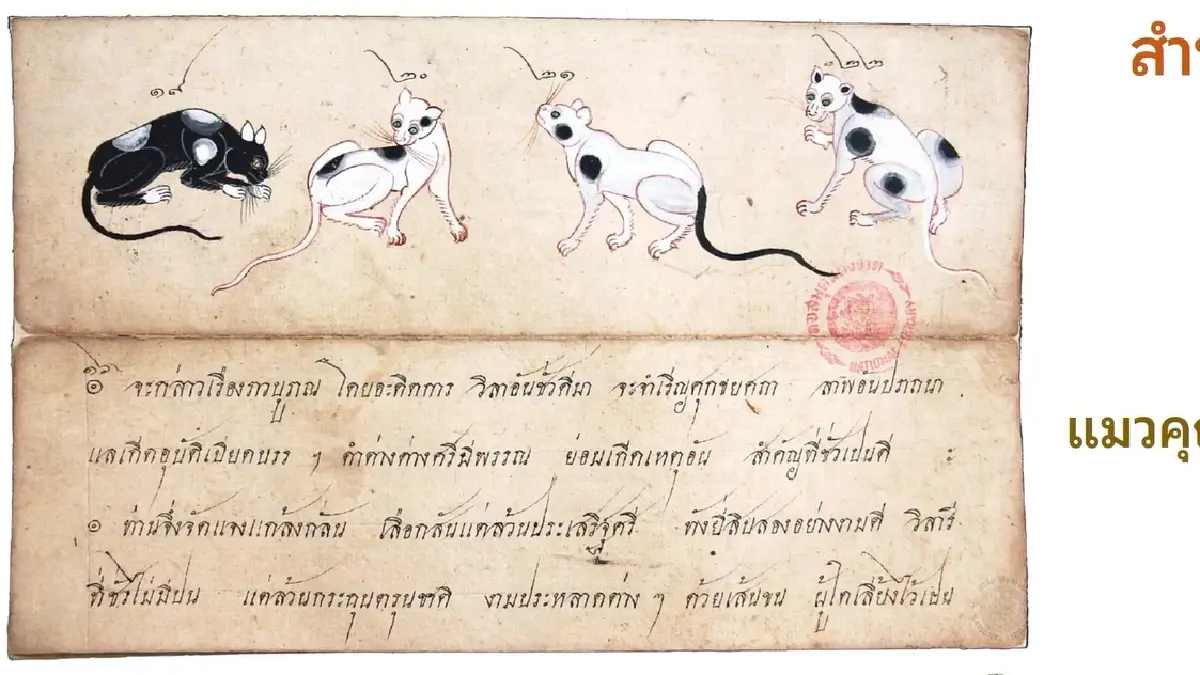 ๑๙ ๒๐ ๒๑ ๒๒
สำ
๏ จะกล่าวเรื่อง โดยอะดิดการ จะจำเริญศุกชยศถา
แมวคุ
แลเกีดอุบัติเบียดบรร ๆ ดำด่างต่างศรีมีพรรณ ย่อมเกีดเหตุอัน สำคัญที่ชัวเปนดี ะ
๏ ท่านจึ่งจัดแจงแกล้งกลัน เลือกสันแต่ล้วนประเสริฐศรี ทังยี่สิบสองอย่างงามดี วิลารี
ที่ชัวไม่มีปน แต่ล้วนกระกูนดรุนชาติ งามประหลาดต่าง ๆ ด้วยเส้นขน ผู้ใดเลี้ยงไว้เปน